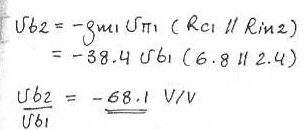 Vb2 = -gm1 Vπ1 (Rc1 // Rin2)
= -38.4 Vb1 (6.8 // 2.4)
Vb2 = -68.1 V/V
Vb1